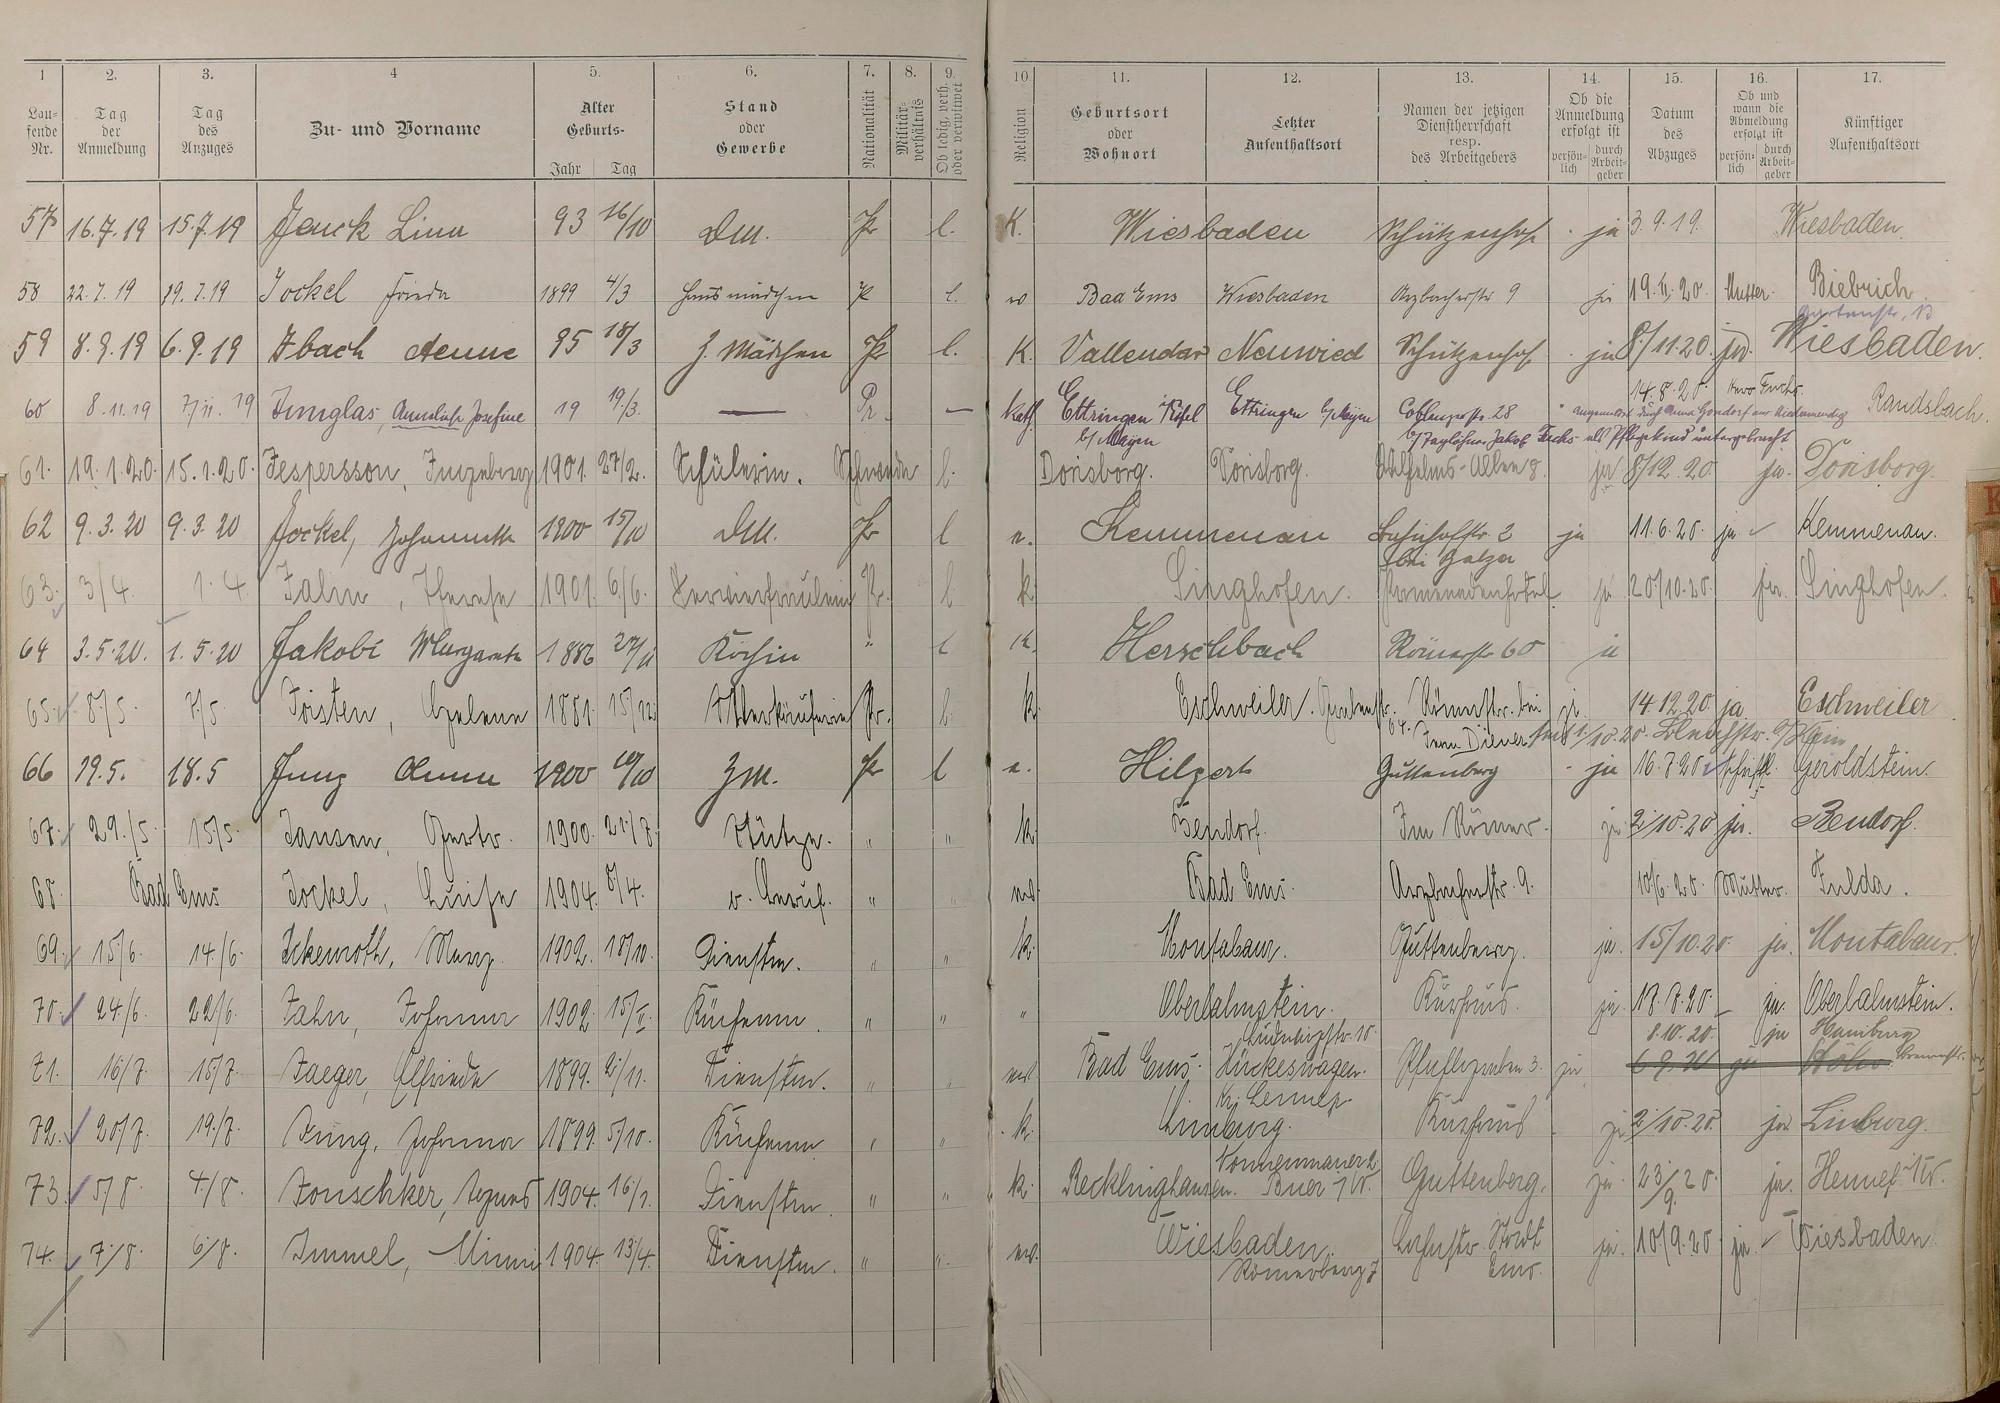 1 2. 3. 4 5. 6. 7. 8. 9. 10. 11. 12. 13. 14. 15. 16. 17.
Lau-fende Nr. Tag der Anmeldung Tag des Anzuges Zu- und Vorname Alter Geburts- Jahr Tag Stand oder Gewerbe Nationalität Militär-verhältnis Ob ledig, verh. oder verwitwet Religion Geburtsort oder Wohnort Letzter Aufenthaltsort Namen der jetzigen Dienstherrschaft resp. des Arbeitgebers Ob die Anmeldung erfolgt ist persön-lich durch Arbeit-geber Datum des Abzuges Ob und wann die Abmeldung erfolgt ist persön-lich durch Arbeit-geber Künftiger Aufenthaltsort
57 16.7.19 15.7.19 Jenck Lina 93 16/10 DM. Pr l. K. Wiesbaden Schützenhof ja 3.9.19. Wiesbaden.
58 22.7.19 19.7.19 Jockel Frieda 1899 4/3 Hausmädchen Pr l. Bad Ems Wiesbaden Arzbacherstr 9 ja 19.II.20. Mutter. Biebrich
Gartenstr. 13
59 8.9.19 6.9.19 Ibach Aenne 95 18/3 Z. Mädchen Pr l. K. Vallendar Neuwied Schützenhof ja 8/11.20. ja. Wiesbaden.
14.8.20.
60 8.11.19 7/11.19 Junglas, Josefine 19 19/3. — Pr. — Kath. Ettringen Ettringen b/Mayen Coblenzerstr. 28 Randsbach.
b/Mayen b/Taglöhner Jakob Fuchs als Pflegekind untergebracht
61. 19.1.20. 15.1.20. Jespersson, Ingeborg 1901. 27/2. Schülerin. Schwede l. Dorisborg. Dorisborg. Wilhelms-Allee 8. ja 8/12.20 ja. Dorisborg.
62 9.3.20 9.3.20 Jockel, Johannette 1900 15/10 DM. Pr l e. Kemmenau Bahnhofstr. 2 ja 11.6.20. ja Kemmenau.
bei Balzer
63. 3/4. 1.4 Jahn, Therese 1901. 6/6. Servierfräulein Pr. l. k. Singhofen. Promenadenhotel ja 20/10.20. ja. Singhofen.
64 3.5.20. 1.5.20 Jakobi Margarete 1886 27/11 Köchin " l K. Herschbach Römerstr. 60 ja
65. 8/5. 7/5. Joisten, Helene 1881. 15/12. Verkäuferin Pr. l. k. Eschweiler. Römerstr. bei ja. 14 12.20. ja Eschweiler
64. Frau Diener
66 19.5. 18.5 Jung Anna 1900 10/10 ZM. Pr l e. Hilgert Guttenberg ja 16.7.20. schriftl. Geroldstein.
67. 29./5. 15/5. Jansen, Gertr. 1900. 21./7. Stütze. " " k. Bendorf. Im Römer. ja 2/10.20 ja. Bendorf.
68. Bad Ems Jockel, Luise 1904. 8/4. o. Beruf. " " Bad Ems. Arzbacherstr. 9. 10/6.20. Mutter. Fulda.
69. 15/6. 14./6. Ickenroth, Marg. 1902. 18/10. Dienstm. " " k. Montabaur. Guttenberg. ja. 15/10.20. ja. Montabaur.
70. 24./6. 22/6. Jahn, Johanna 1902. 15/V. Küchenm. " " " Oberlahnstein. Kurhaus. ja. 17.7.20. ja. Oberlahnstein.
8.10.20. ja Hamburg
71. 16/7. 15/7. Jaeger, Elfriede 1899. 2/11. Dienstm. " " Bad Ems. Hückeswagen. Pfahlgraben 3. ja
Kr. Lennep.
72. 20/7. 19./7. Jung, Johanna 1899. 5/10. Küchenm. " " k. Limburg. Kurhaus ja 2/10.20. ja Limburg.
Nonnenmauer 2.
73. 5/8. 4/8. Jonschker, Agnes 1904. 16/1. Dienstm. " " k. Recklinghausen. Buer i/W. Guttenberg. ja. 23/9.20. ja. Hennef
74. 7/8. 6/8. Immel, Minni 1904. 13/4. Dienstm. " " Wiesbaden. Bahnstr. Stadt ja. 10/9.20 ja. Wiesbaden.
Römerberg 7 Ems.